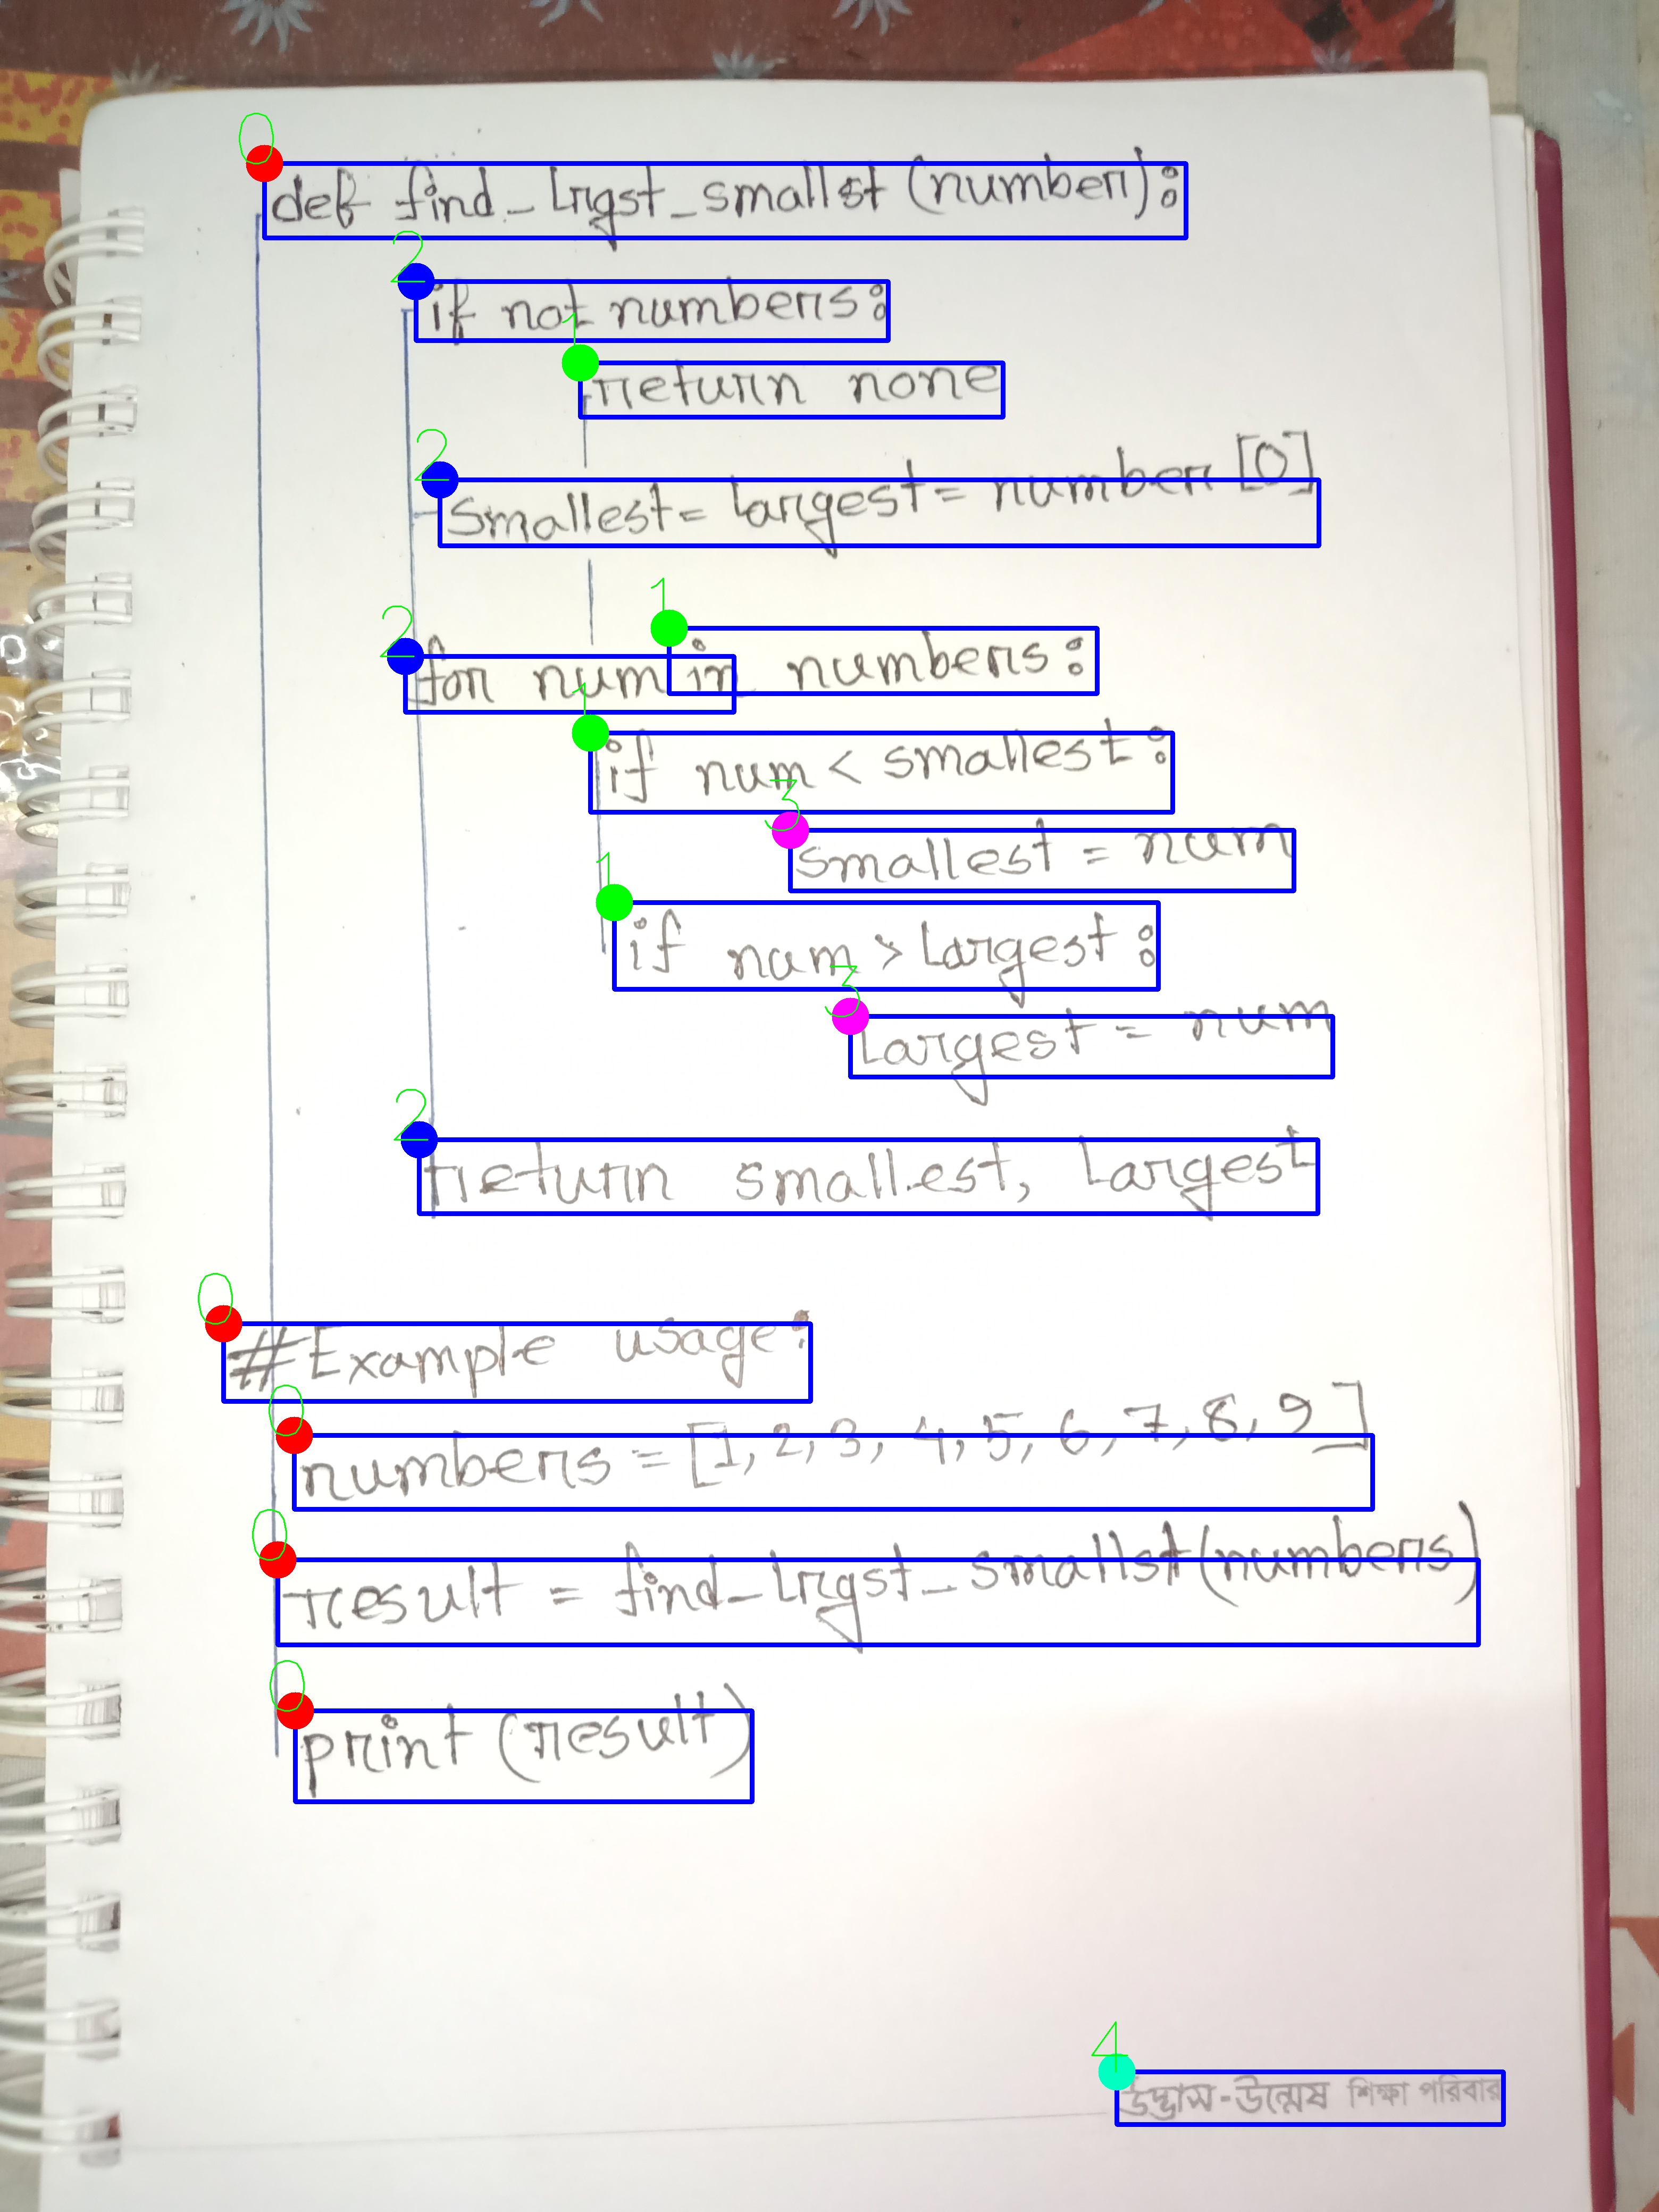 def find_lrgst_smallst (number):
if not numbers:
return none
smallest = largest = number [0]
for num in numbers:
if num < smallest:
smallest = num
if num > largest:
largest = num
return smallest, largest
#Example usage:
numbers = [1, 2, 3, 4, 5, 6, 7, 8, 9]
result = find_lrgst_smallst(numbers)
print (result)
উদ্ভাস-উন্মেষ শিক্ষা পরিবার